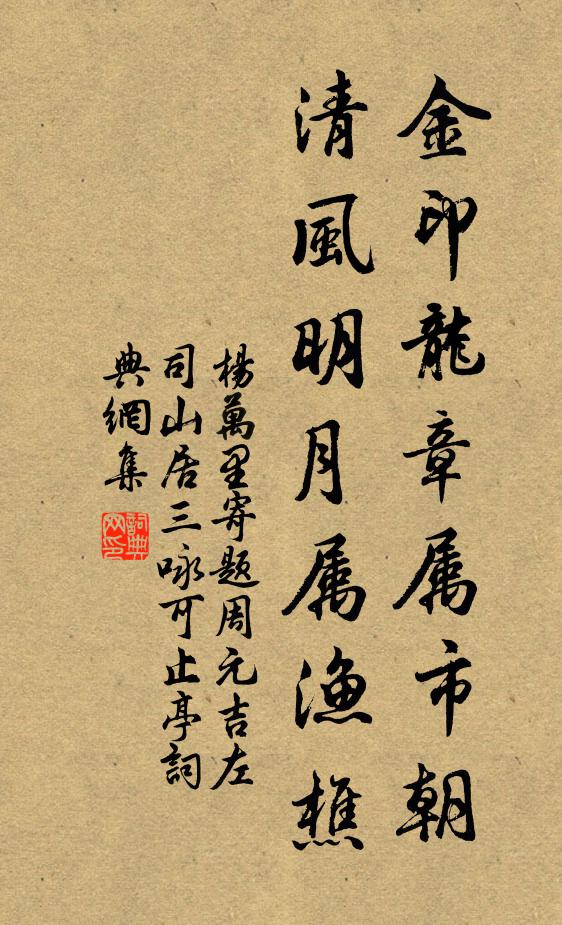 金印龍章属市朝
清風明月属漁樵
楊萬里寄題周元吉左
司山居三咏可止亭詞
典網集
詞典网印